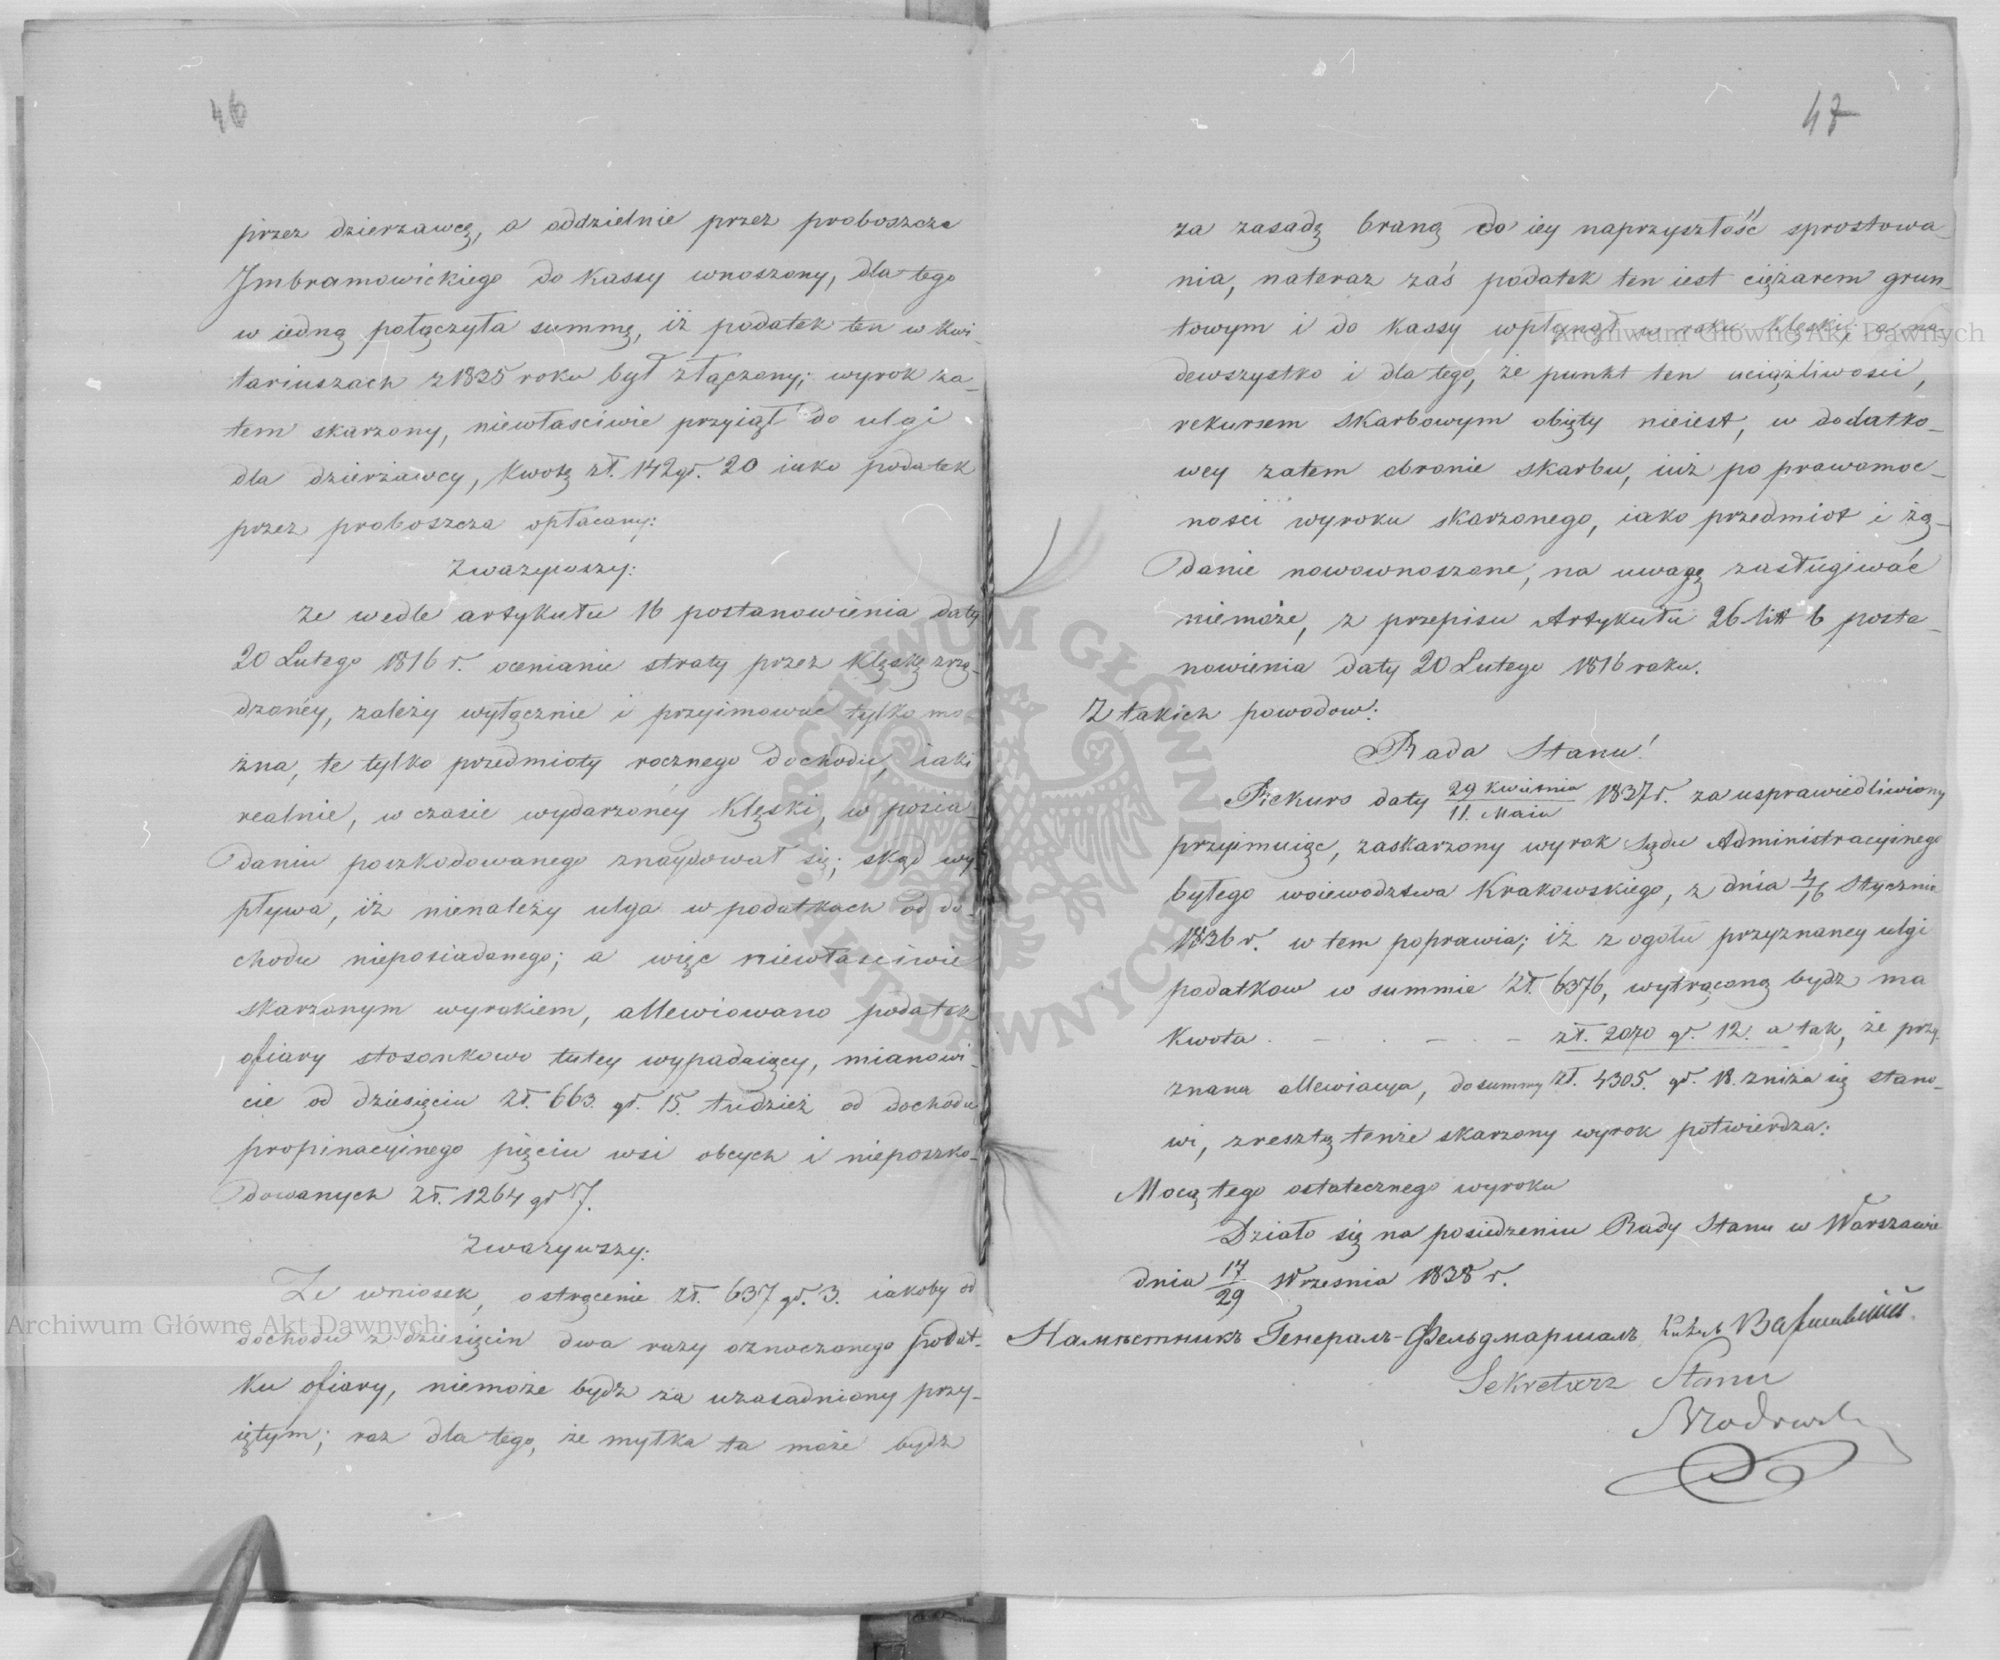 46
przez dzierzawcę, a oddzielnie przez proboszcza
Jmbramowickiego do kassy wnoszony, dla tego
w iedną połączyła summę, iż podatek ten w kwi-
tariuszach z 1835 roku był złączony; wyrok za-
tem skarzony, niewłasciwie przyiął do ulgi
dla dzierżawcy, kwotę zł. 142 gr. 20 iako podatek
przez proboszcza opłacany:
Zwazywszy:
że wedle artykułu 16 postanowienia daty
20 Lutego 1816 r. ocenianie straty przez klęskę zrzą-
dzoney, zależy wyłącznie i przyimować tylko mo-
żna, te tylko przedmioty rocznego dochodu, iaki
realnie, w czasie wydarzoney klęski, w posia-
daniu poszkodowanego znaydował się; skąd wy-
pływa, iż nienależy ulga w podatkach od do-
chodu nieposiadanego; a więc niewłasciwie
skarzonym wyrokiem, allewiowano podatek
ofiary stosonkowo tutey wypadaiący, mianowi-
cie od dziesięciu zł. 663. gr. 15. tudzież od dochodu
propinacyinego pięciu wsi obcych i nieposzko-
dowanych zł. 1264 gr 7.
Zwazywszy:
Ze wniosek, o strącenie zł. 637 gr. 3. iakoby od
dochodu z dziesięcin dwa razy oznaczonego podat-
ku ofiary, niemoże bydz za uzasadniony przy-
iętym; raz dla tego, że myłka ta może bydz
47
za zasadę braną do iey naprzyszłość sprostowa-
nia, nateraz zaś podatek ten iest ciężarem grun-
towym i do kassy wpłynął w roku klęski; a na-
dewszystko i dla tego, że punkt ten uciążliwosci,
rekursem skarbowym obięty nieiest, w dodatko-
wey zatem obronie skarbu, iuż po prawomoc-
nosci wyroku skarzonego, iako przedmiot i żą-
danie nowownoszone, na uwagę zasługiwać
niemoże, z przepisu Artykułu 26 litt b posta-
nowienia daty 20 Lutego 1816 roku.
Z takich powodow:
Rada Stanu!
Rekurs daty 29 kwietnia / 11. Maia 1837 r. za usprawiedliwiony
przyimuiąc, zaskarzony wyrok Sądu Administracyinego
byłego woiewodztwa Krakowskiego, z dnia 4/16 Stycznia
1836 r. w tem poprawia; iż z ogołu przyznaney ulgi
podatkow w summie zł. 6376, wytrąconą bydz ma
kwota . – . – – zł. 2070 gr. 12. a tak, że przy-
znana allewiacya, do summy zł. 4305. gr. 18. zniża się stano-
wi, zresztą tenże skarzony wyrok potwierdza:
Mocą tego ostatecznego wyroku
Działo się na posiedzeniu Rady Stanu w Warszawie
dnia 17/29 Wrzesnia 1838 r.
Намѣстникъ Генералъ-Фельдмаршалъ, Князь Варшавскій.
Sekretarz Stanu
Archiwum Główne Akt Dawnych
Archiwum Główne Akt Dawnych
ARCHIWUM GŁÓWNE AKT DAWNYCH